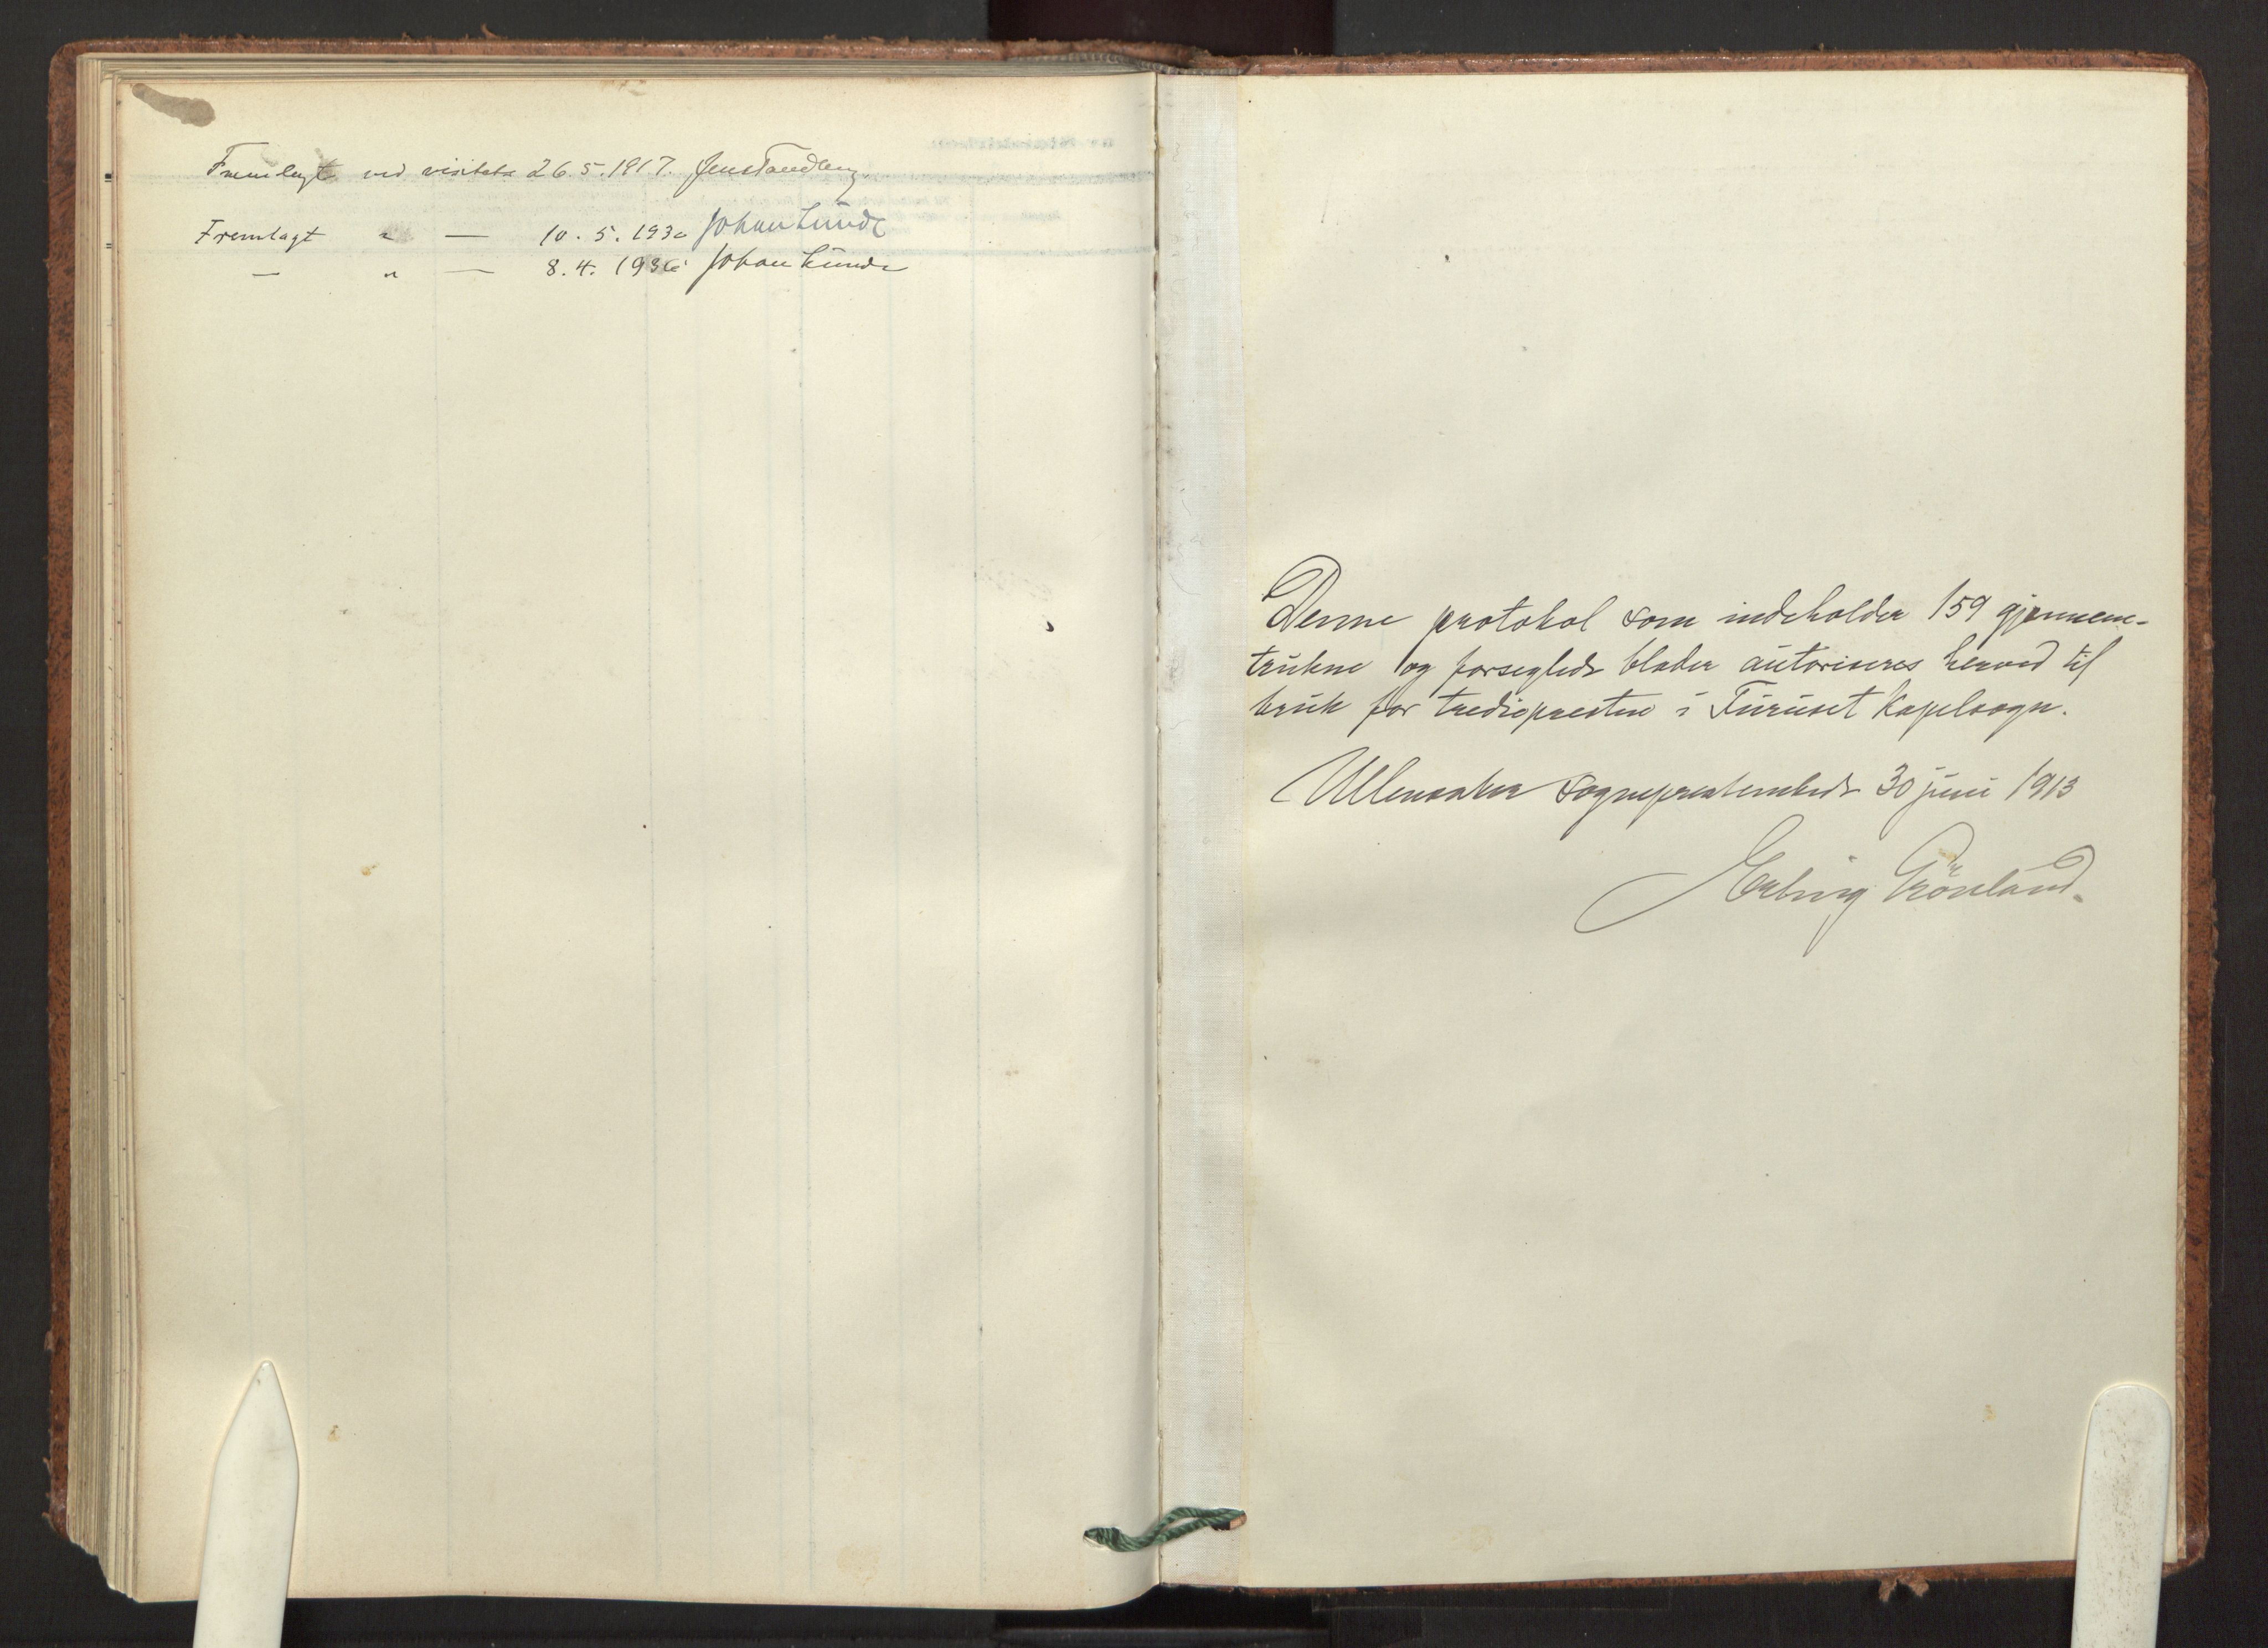 Fremlagt ved visitats 26.5.1917. Jens Tandberg
Fremlagt " — 10.5.1930 Johan Lunde
— " — 8.4.1936 Johan Lunde
Denne protokol som indeholder 159 gjennem-
trukne og forseglede blader autoriseres herved til
bruk for trediepresten i Furuset Kapelsogn.
Ullensaker sogneprestembede 30 juni 1913
Erling Grönland.